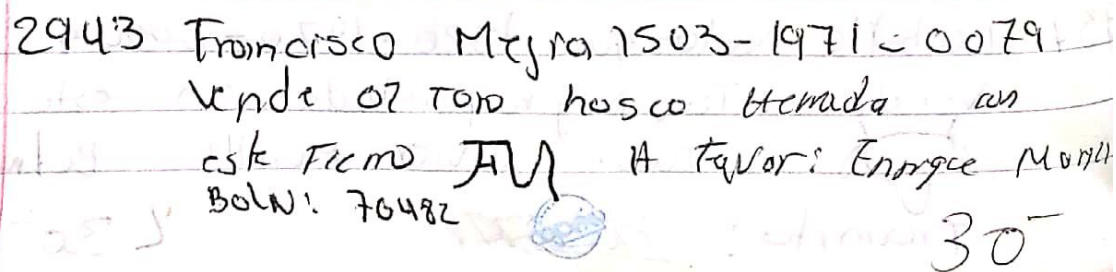 2943 Francisco Mejra 1503-1971-0079
Vende 02 Toro hosco Herrada con
este Fierro A Favor: Enrrqce
BolN: 70482
30